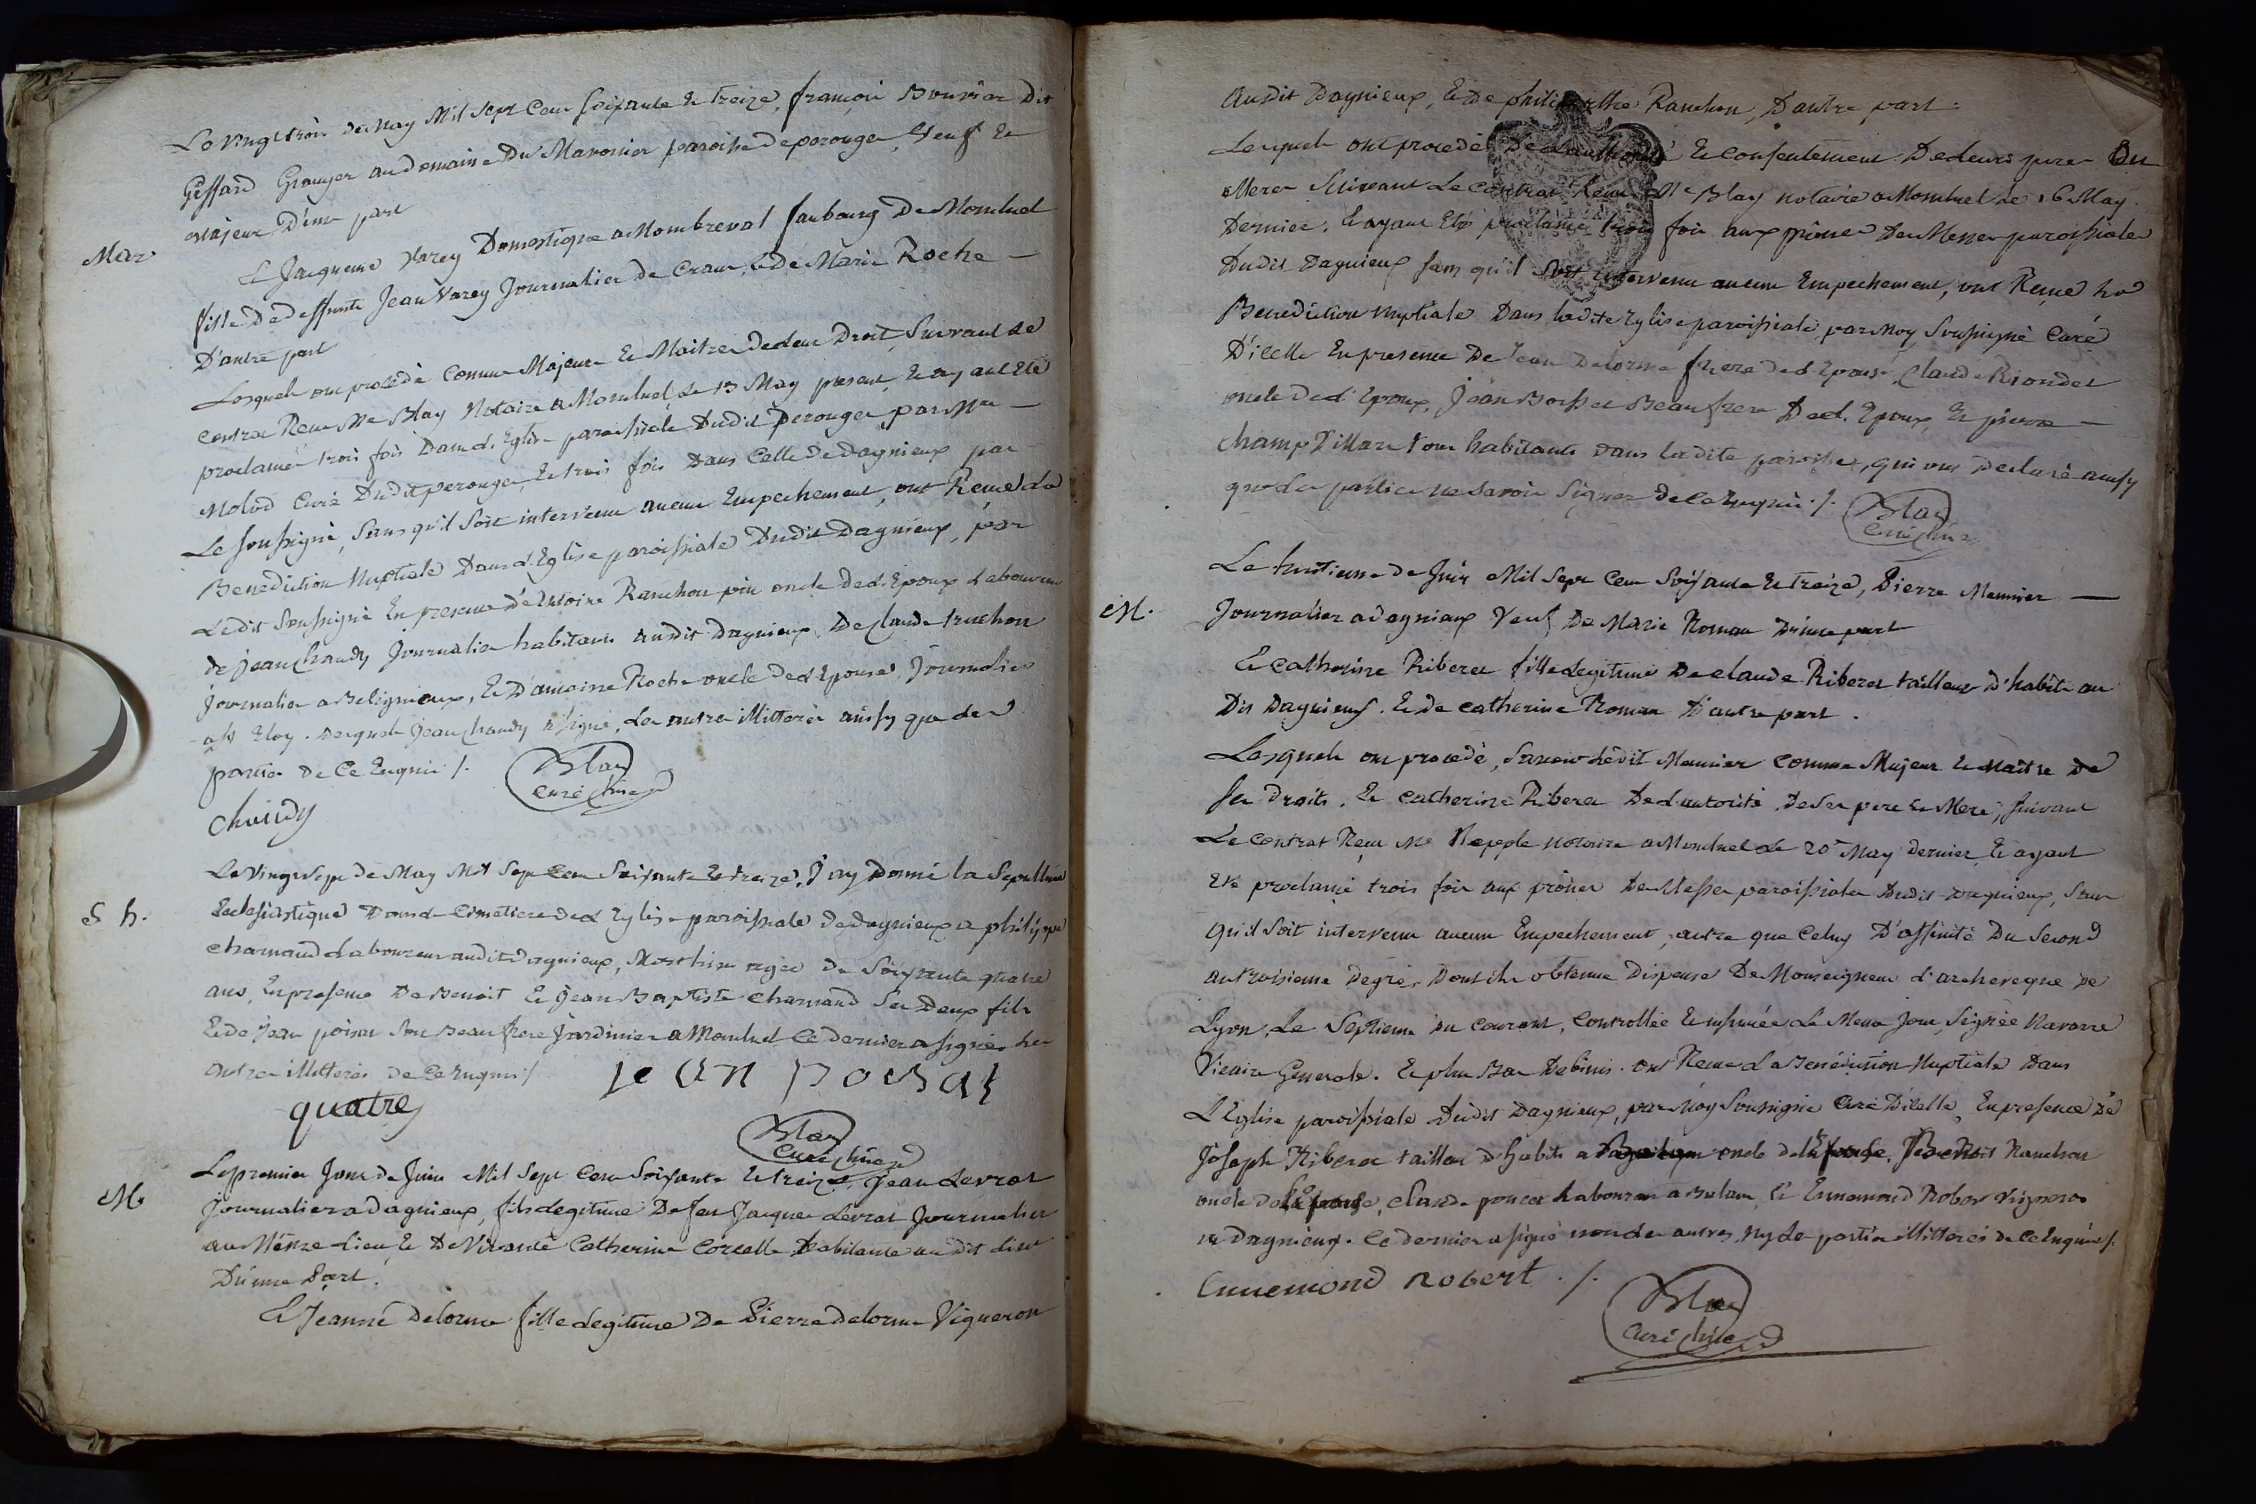 Le vingt trois de May Mil sept Cent soixante et treize, françois Bouvier dit
Geffard Granger au domaine du Maronier paroisse de perouge, veuf et
Majeur d'une part
Mar.
Et Jacqueme Varey Domestique a Mombreval faubourg de Monluel
fille de deffunt Jean Varey Journalier de Crans, et de Marie Roche
D'autre part
Lesquels ont procedé comme Majeurs et Maitres de leur Droit, suivant le
contrat Recu Me Blay Notaire a Monluel le 13 May present, et ayant Eté
proclamés trois fois Dans l'Eglise paroissiale Dudit perouge par Mre
Molod Curé Dudit perouge, et trois fois Dans Celle de dagnieux par
Le soussigné, Sans qu'il soit intervenu aucun Empechement, ont Recu la
Benediction Nuptiale Dans l'Eglise paroissiale Dudit Dagnieux, par
Ledit Soussigné En presence d'Antoine Ranchon oncle de l'Epoux Laboureur
de jean Chaudy Journalier habitans audit Dagnieux, De Claude truchon
Journalier a Beligneux, et D'antoine Roche oncle de l'Epouse Journalier
a St Eloy. Desquels Jean Chaudy a signé, Les autres illitteres ainsy que les
parties de Ce Enquis /.
Blay
curé
Chaudy
S h.
Le Vingt sept de May Mil Sept Cent Soixante et treize, J'ay Donné la Sepulture
Ecclesiastique Dans le Cimetiere de l'Eglise paroissiale de dagnieux a philippe
charnaud Laboureur audit dagnieux, Mort hier agée de Soixante quatre
ans, En presence De Benoit et Jean Baptiste charnaud ses Deux fils
et de Jean poisat son Beau frere Jardinier a Monluel Ce dernier a signé, les
autres illitteres de Ce Enquis /.
jean poisat
quatre
Blay
Curé
M.
Le premier Jour de Juin Mil Sept Cent Soixante et treize, Jean Levrat
Journalier a dagnieux, fils Legitime De feu Jacques Levrat Journalier
au Même Lieu et De Vivante Catherine Corcelle habitante au dit Lieu
D'une Part.
Et Jeanne Delorme fille Legitime De Pierre Delorme Vigneron
audit Dagnieux, et De Ranchon, D'autre part.
Lesquels ont procedé De l'authorité et Consentement De leurs peres
Meres Suivant Le Contrat Recu Me Blay notaire a Monluel le 16 May
Dernier. Et ayant Eté proclamés trois fois aux prônes Des Messes paroissiales
Dudit Dagnieux sans qu'il soit intervenu aucun Empechement, ont Recu la
Benediction nuptiale Dans ladite Eglise paroissiale par Moy Soussigné Curé
D'icelle En presence De Jean Delorme frere de l'Epouse, Claude Riondet
oncle de l'Epoux, Jean Beau frere De l'Epoux, et pierre
champ Villars tous habitants dans ladite paroisse, qui ont Declaré ainsy
que Les parties ne savoir signer de Ce Enquis /.
Blay
Curé
M.
Le huitieme de Juin Mil Sept Cent Soixante et treize, Pierre Meunier
Journalier a dagnieux Veuf De Marie Roman D'une part
Et Catherine Riberet fille Legitime De claude Riberet tailleur d'habits au
Dit Dagnieux. Et de catherine Roman D'autre part.
Lesquels ont procedé, Savoir Ledit Meunier comme Majeur et maitre de
ses droits, Et Catherine Riberet De l'autorité de ses pere et Mere, suivant
Le contrat Reçu Me notaire a Monluel Le 20e May dernier, Et ayant
Eté proclamé trois fois aux prônes Des Messes paroissiales Dudit dagnieux, Sans
qu'il soit intervenu aucun Empechement, autre que Celuy D'affinité Du Second
au troisieme degré, Dont ils obtenu Dispense De Monseigneur l'archeveque de
Lyon, Le Septieme du Courant, Controllée et insinuée Le Meme Jour, Signée Navarre
Vicaire General. Et plus Bas Debinis. ont Reçu La Benediction Nuptiale Dans
L'Eglise paroissiale Dudit Dagnieux, par Moy Soussigné Curé D'icelle, En presence De
Joseph Riberet tailleur d'habits a oncle de l'Epouse, Benoit Ranchon
oncle de l'Epouse, Claude poncet Laboureur a Balan, et Ennemond Robert Vigneron
a Dagnieux. Ce dernier a signé non les autres, Ny Les parties illitteres de Ce Enquis /.
Ennemond Robert /.
Blay
curé